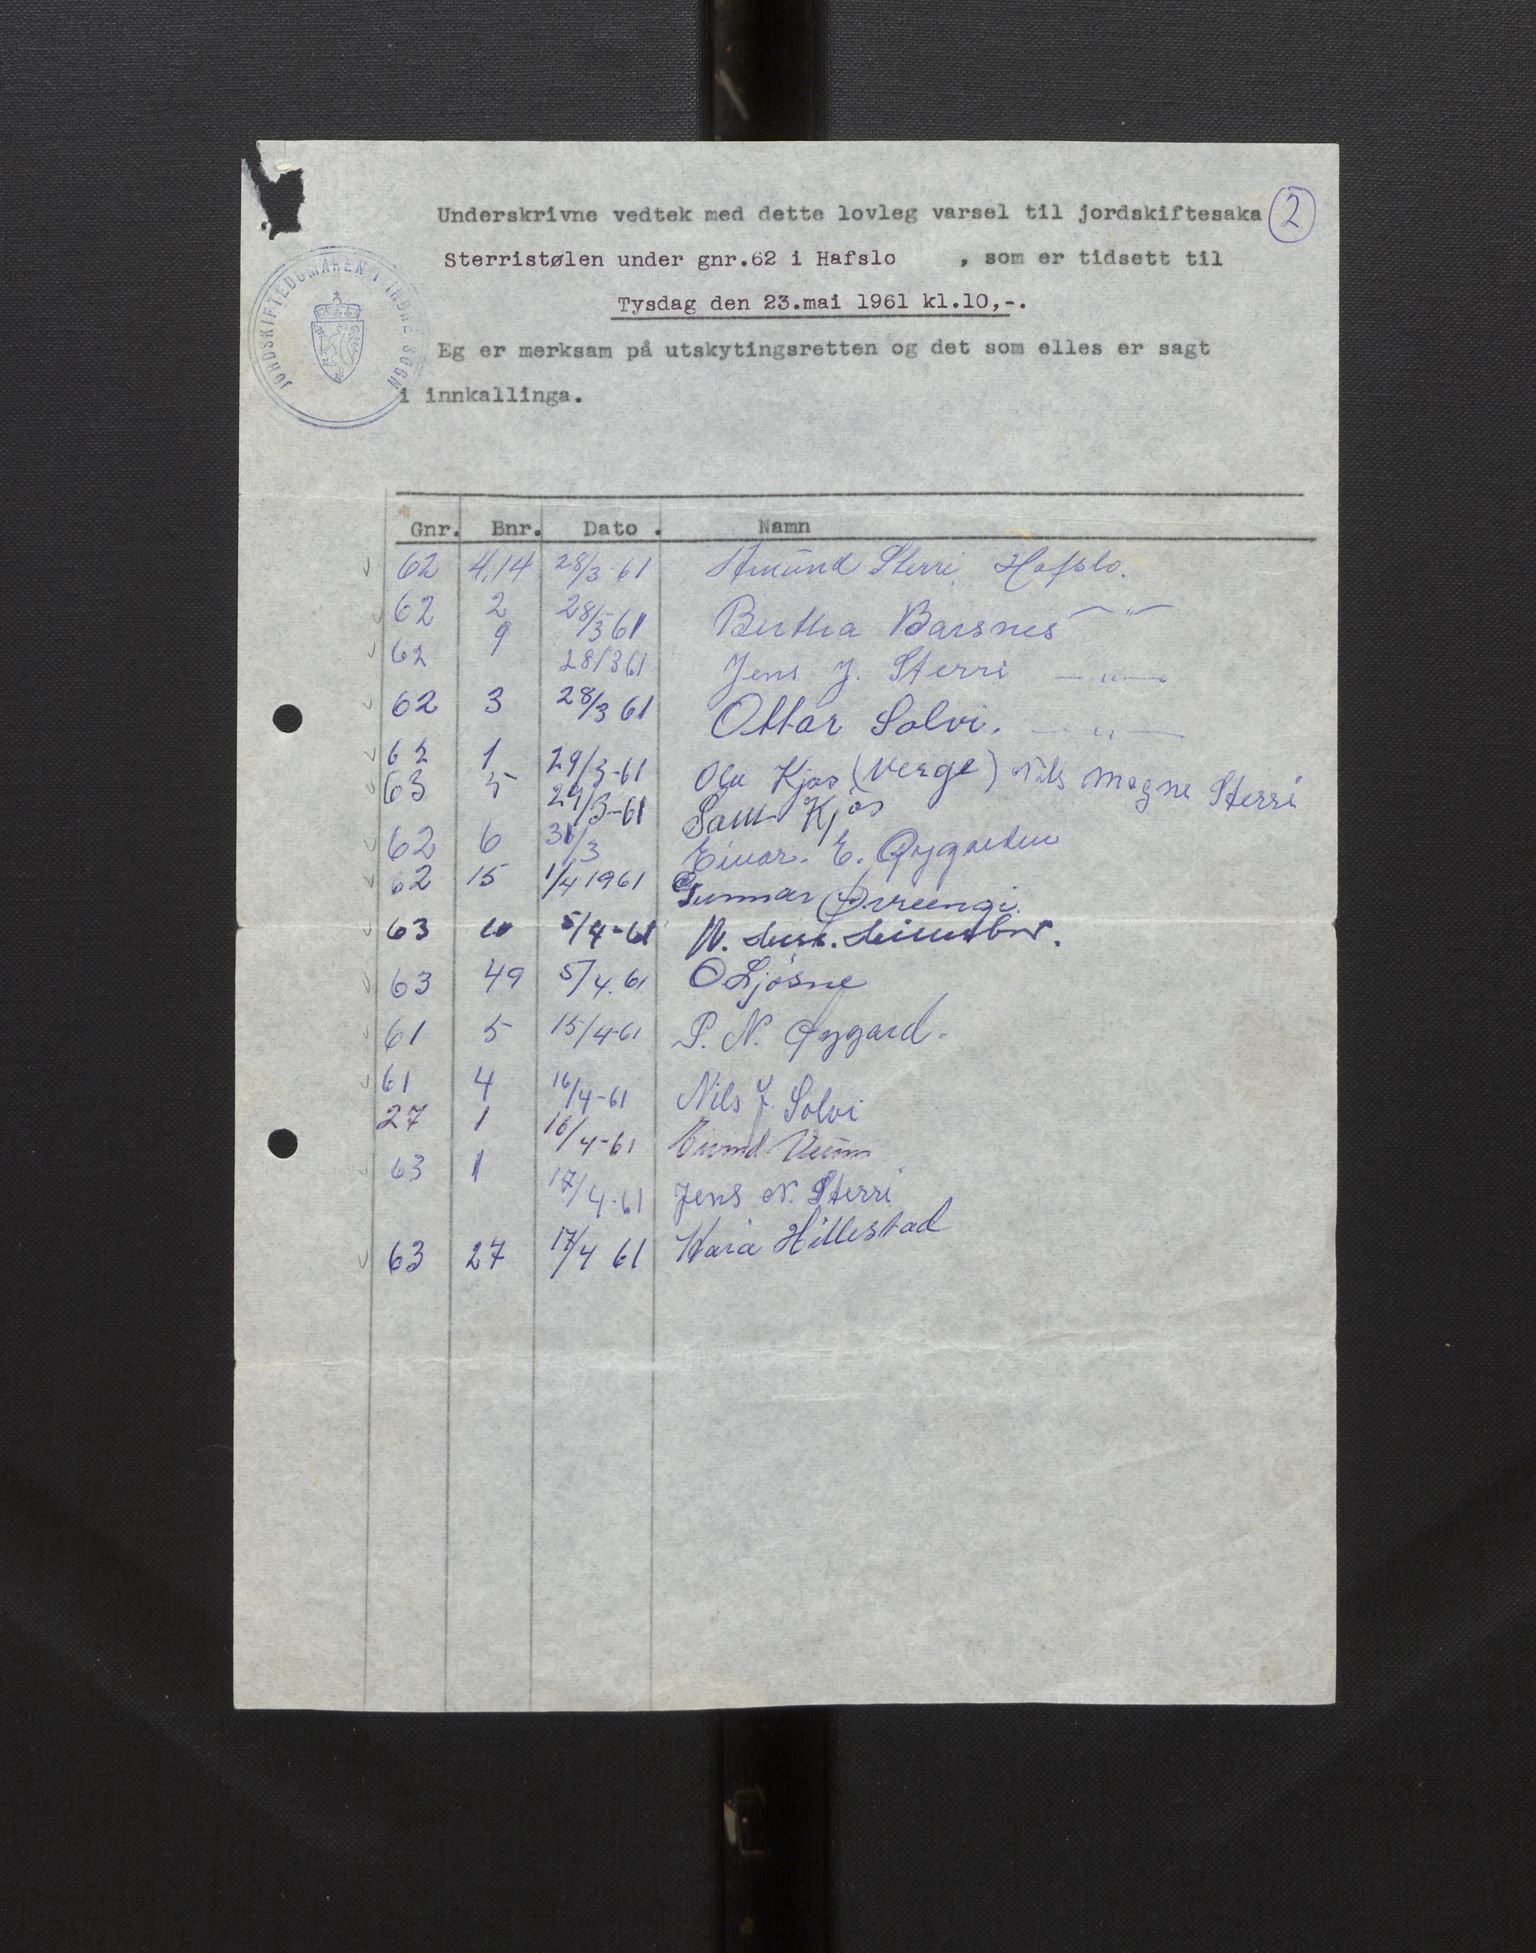 Underskrivne vedtek med dette lovleg varsel til jordskiftesaka 2
Sterristølen under gnr.62 i Hafslo , som er tidsett til
Tysdag den 23.mai 1961 kl.10,-.
JORDSKIFTEDOMAREN I INDRE SOGN
Eg er merksam på utskytingsretten og det som elles er sagt
i innkallinga.
Gnr. Bnr. Dato . Namn
62 4,14 28/3-61 Amund Sterri, Hafslo.
62 2 28/3 61 Bertha Barsnes — " —
62 9 28/3 61 Jens J. Sterri — " —
62 3 28/3 61 Ottar Solvi. — " —
62 1 29/3-61 Ola Kjos (Verge) Nils Magne Sterri
63 5 29/3-61 Sam Kjos
62 6 31/3 Einar. E. Øygarden
62 15 1/4 1961 Gunnar Ørreengi.
63 5/4-61
63 49 5/4.61 O Ljøsne
61 5 15/4-61 P. N. Øygard.
61 4 16/4-61 Nils J. Solvi
27 1 16/4-61
63 1 17/4-61 Jens N. Sterri
63 27 17/4 61 Kara Hillestad